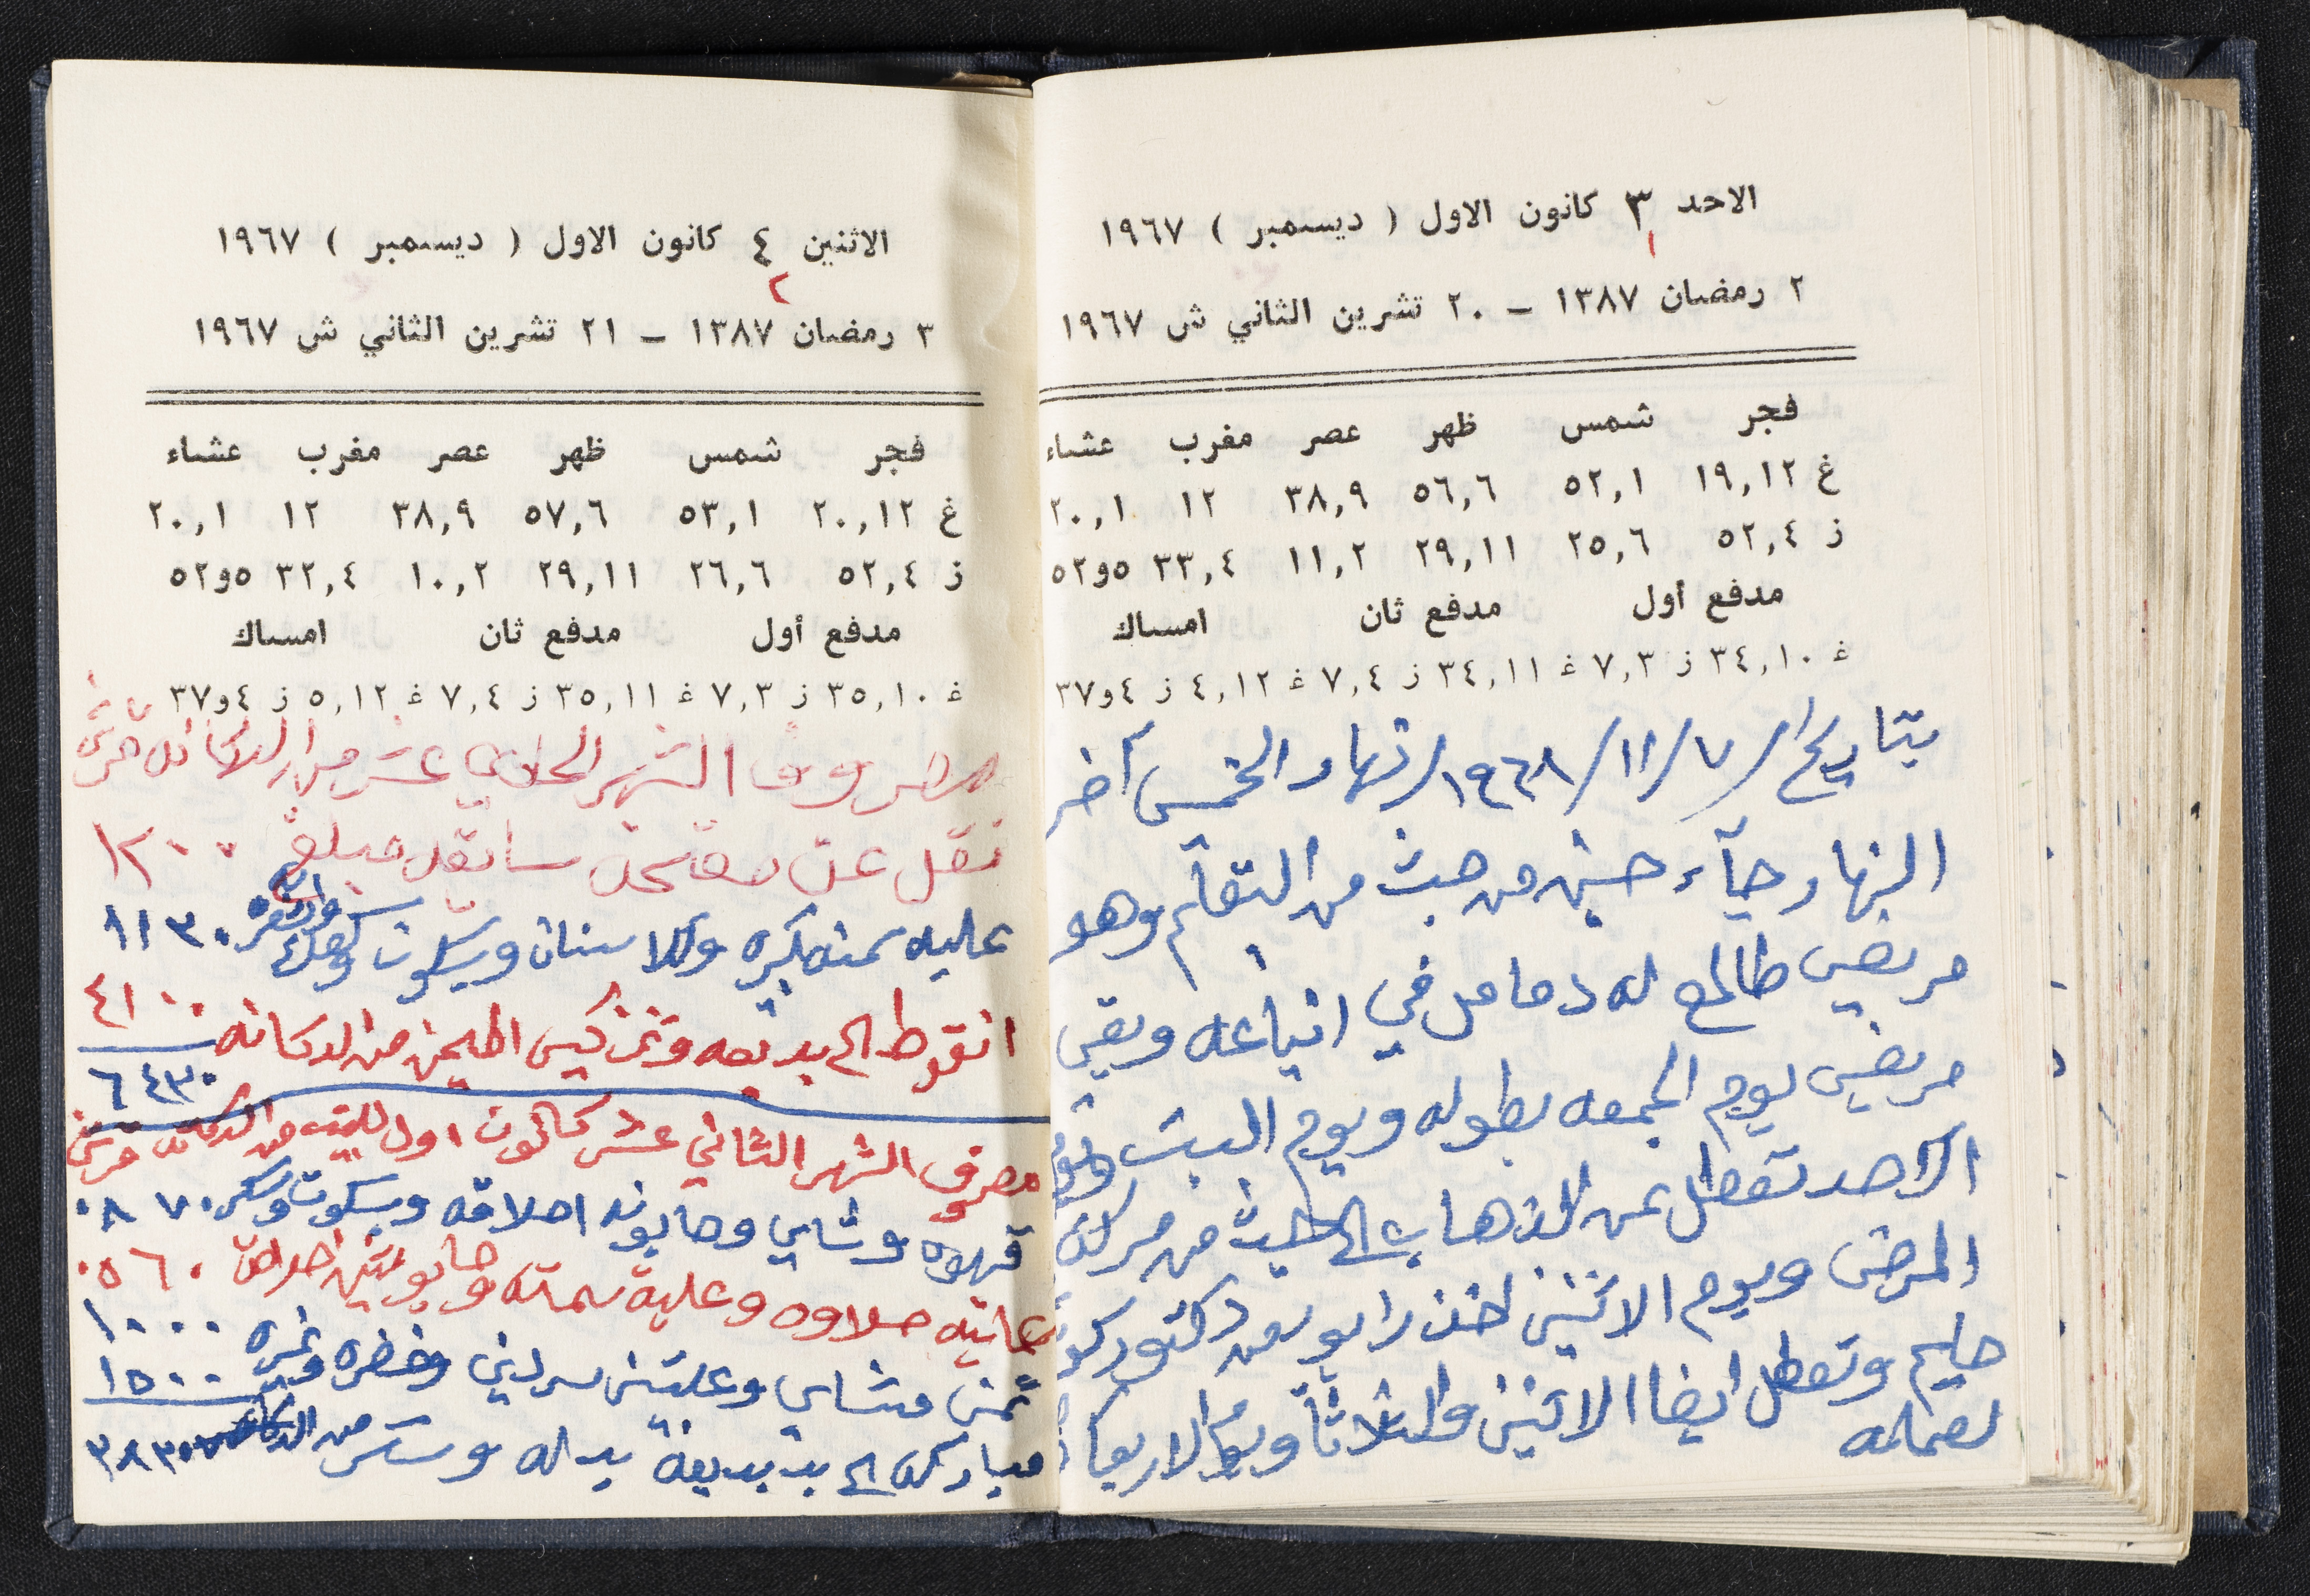 الاحد ٣ كانون الاول ( ديسمبر ) ١٩٦٧
١
٢ رمضان ١٣٨٧ – ٢٠ تشرين الثاني ش ١٩٦٧
فجر شمس ظهر عصر مغرب عشاء
غ ١٩,١٢ ٥٢,١ ٥٦,٦ ٣٨,٩ ١٢ ٢٠,١
ز ٥٢,٤ ٢٥,٦ ٢٩,١١ ١١,٢ ٣٣,٤ ٥و٥٢
مدفع أول مدفع ثان امساك
غ ٣٤,١٠ ز ٧,٣ غ ٣٤,١١ ز ٧,٤ غ ٤,١٢ ز ٤و٣٧
بتاريخ ٧/١١/١٩٦٨/ نهار الخمس آخر
النهار جآء حسني من حبث من التقلم وهو
مريض طالع له دمامل في انباعه وبقي
مريض يوم الجمعه بطوله ويوم السبت ويوم
الاحد تعطل عن الذهاب الى من
المرض ويوم الاثنين اخذ من دكتور
حليم وتعطل ايضا الاثنين والثلاثاً ويوم الاربعا
لعمله
الاثنين ٤ كانون الاول ( ديسمبر ) ١٩٦٧
٢
٣ رمضان ١٣٨٧ – ٢١ تشرين الثاني ش ١٩٦٧
فجر شمس ظهر عصر مغرب عشاء
غ ٢٠,١٢ ٥٣,١ ٥٧,٦ ٣٨,٩ ١٢ ٢٠,١
ز ٥٢,٤ ٢٦,٦ ٢٩,١١ ١٠,٢ ٣٢,٤ ٥و٥٢
مدفع أول مدفع ثان امساك
غ ٣٥,١٠ ز ٧,٣ غ ٣٥,١١ ز ٧,٤ غ ٥,١٢ ز ٤و٣٧
مصروف الشهر الحادي عشر من الدكانه
نقل عن صفحه سابقه مبلغ ١٢٠٠
عليه سمنه كبيره وبسكوت وكعك ١١٣٠
انقوط الى بديعه وثمن كيس الطحين من الدكانه ٤١٠٠
٦٤٣٠
مصرف الشهر الثاني عشر كانون اول للبيت من الدكانه
قهوه وشاي وصابونه احلاقه وبسكوت وسكر ٠٨٧٠
علبته حلاوه وعلبة سمنه وصابونتين ٠٥٦٠
ثمن وعلبتين سردين وخضره وغيره ١٠٠٠
١٥٠٠
الى بديعة بدله وستره من ٣٨٣٠